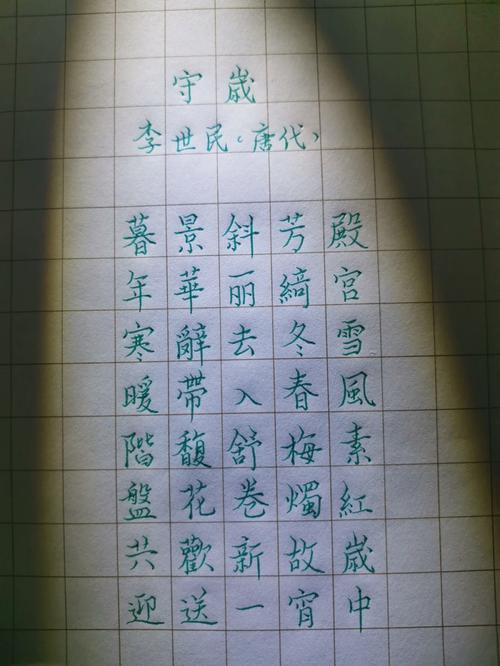 守歲
李世民（唐代）
暮景斜芳殿
年華丽綺宮
寒辭去冬雪
暖帶入春風
階馥舒梅素
盤花卷燭紅
共歡新故歲
迎送一宵中